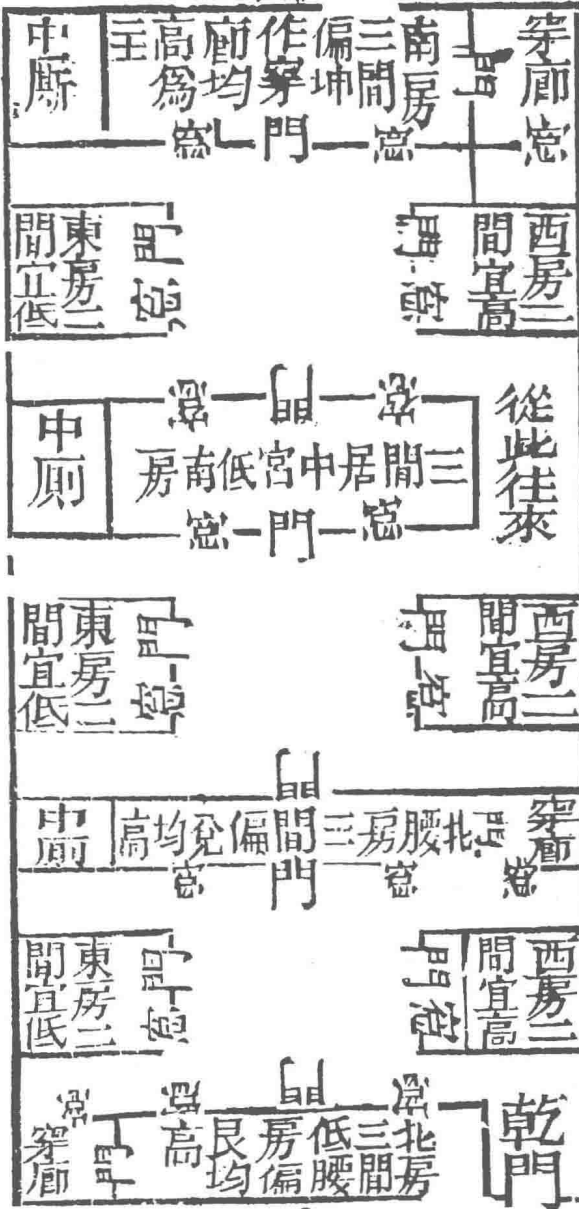 穿廊窓
門
南房三間偏坤作穿廊均高爲主
中厮
窓門窓
西房二
間宜高
門窓
東房二
間宜低
門窓
從此往來
窓門窓
三間居中宮低南房
中厠
窓門窓
西房二
間宜高
門窓
東房二
間宜低
門窓
門
穿廊
門
北腰房三間偏兌均高
中厠
窓窓門窓
西房二
間宜高
門窓
東房二
間宜低
門窓
乾門
窓門窓窓
北房三間低腰房偏艮均高
門
穿廊